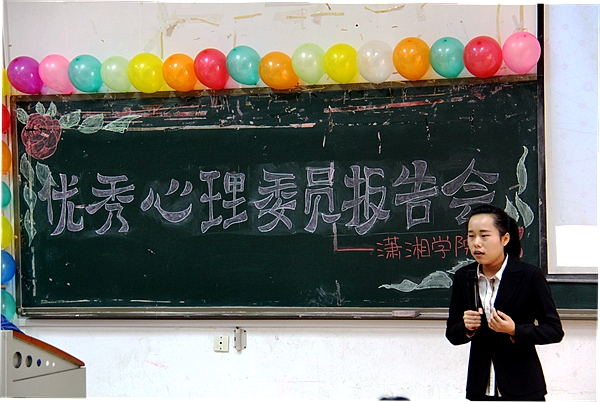 优秀心理委员报告会
潇湘学院